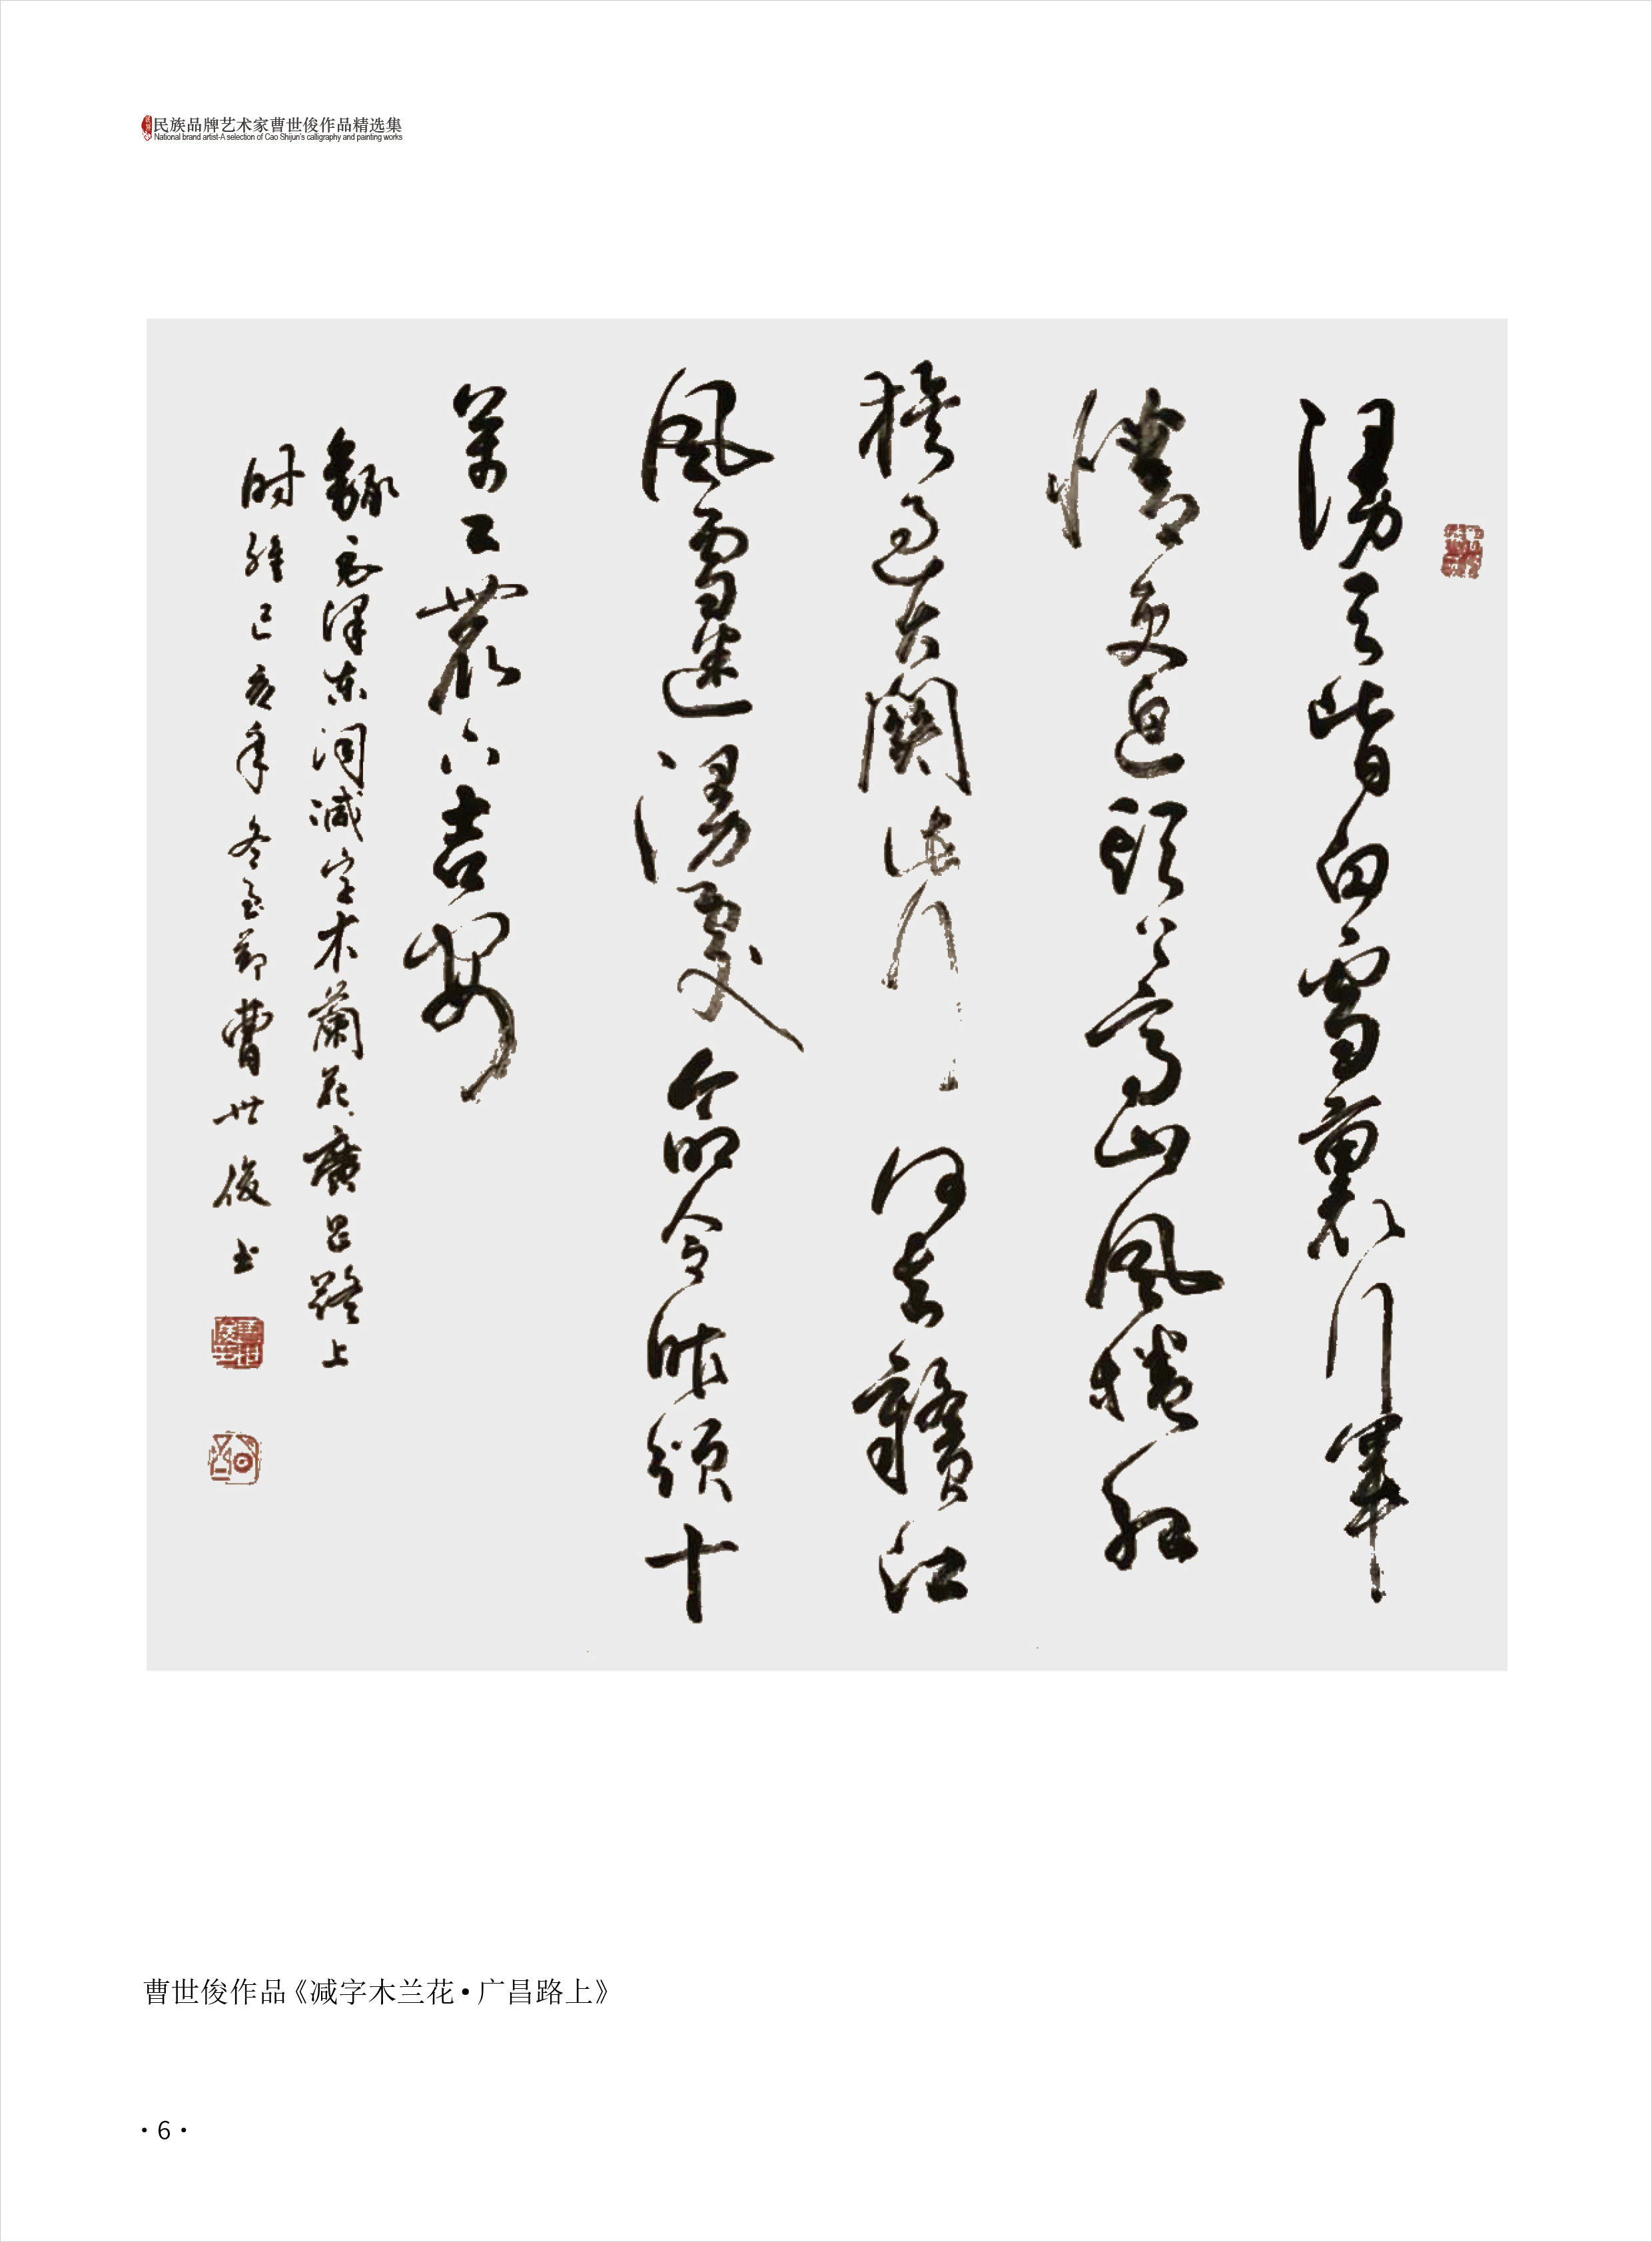 民族品牌艺术家曹世俊作品精选集
National brand artist-A selection of Cao Shijun's calligraphy and painting works
漫天皆白雪裏行軍
情更迫頭上高山風捲紅
旗過大關此行何去贛江
風雪迷漫處命令昨頒十
萬工農下吉安
毛澤東詞減字木蘭花廣昌路上
时維己亥年冬至節曹世俊书
曹世俊作品《减字木兰花•广昌路上》
·6·